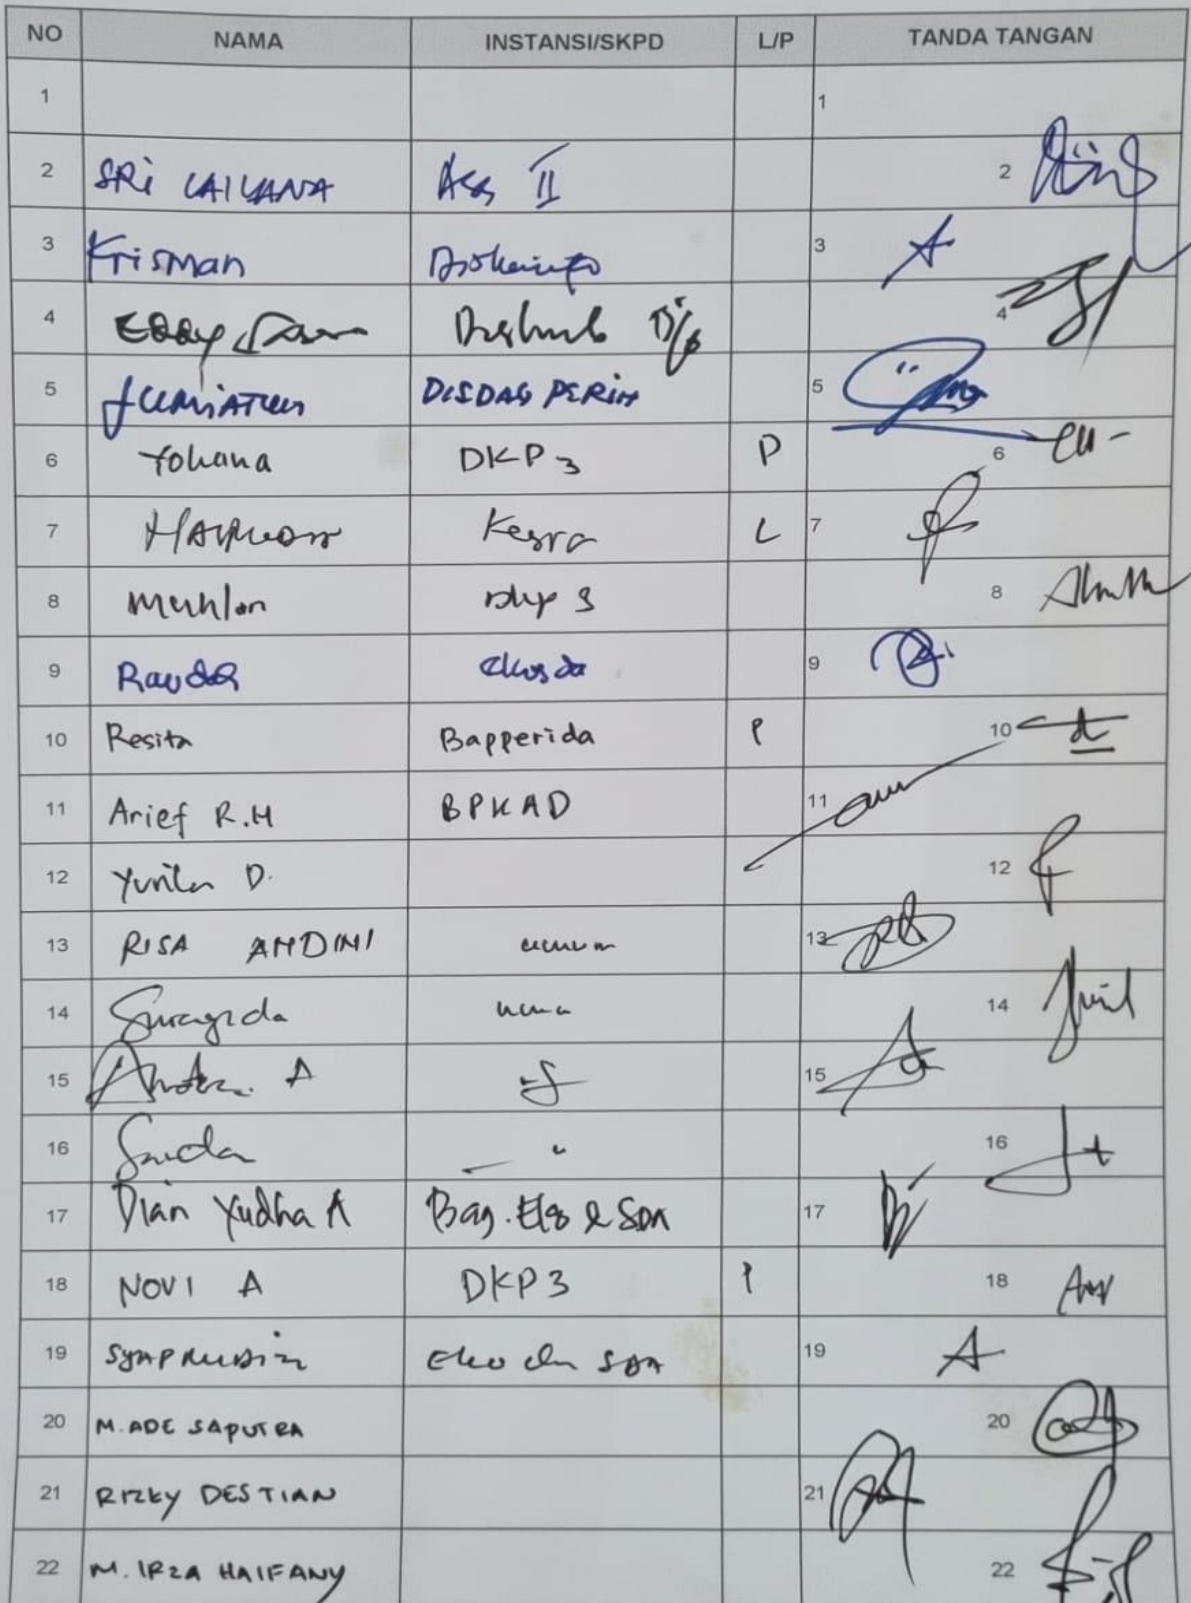 NO NAMA INSTANSI/SKPD L/P TANDA TANGAN
1 1
2 SRI LAILANA Ass II 2
3 Krisman Diskominfo 3
4 EDDY Dishub 4
5 JUMIATUN DISDAG PERIN 5
6 Yohana DKP3 P 6
7 Kesra L 7
8 Muhlan DKP 3 8
9 Raudah ekosda 9
10 Resita Bapperida P 10
11 Arief R.H BPKAD 11
12 Yunita D. 12
13 RISA ANDINI umum 13
14 14
15 A 15
16 Saida 16
17 Dian Yudha A Bag. Eko & SDA 17
18 NOVI A DKP3 P 18
19 SYAPRUDIN Eko dan SDA 19
20 M. ADE SAPUTRA 20
21 RIZKY DESTIAN 21
22 M. IRZA HAIFANY 22